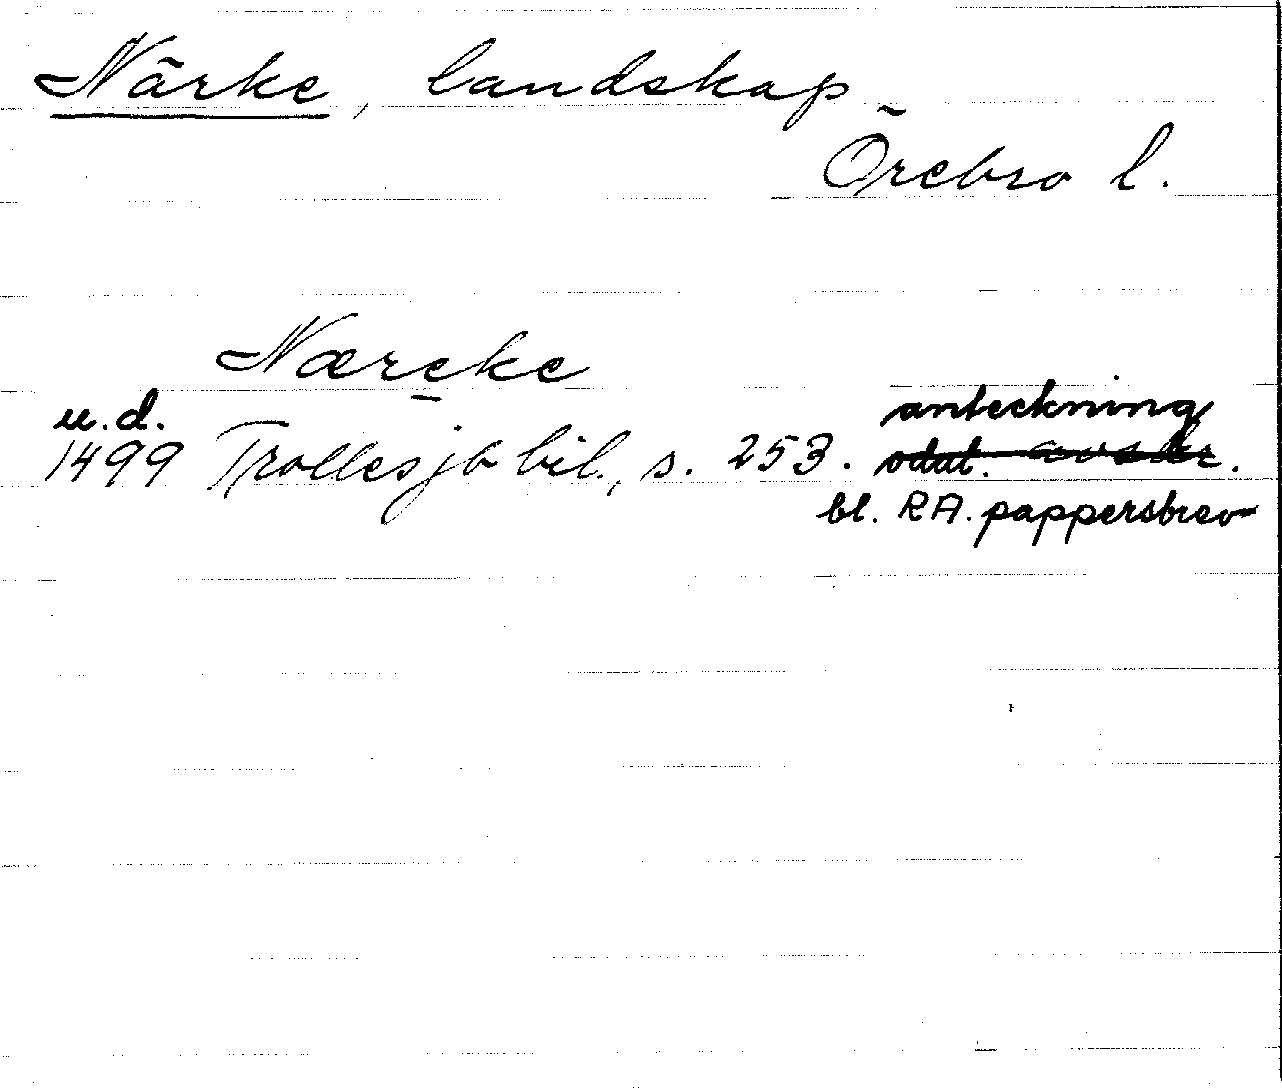 Närke, landskap
Örebro l.
Nærcke
u.d. anteckning
1499 Trollesjö bil., s. 253. odat. avskr.
bl. RA. pappersbrev